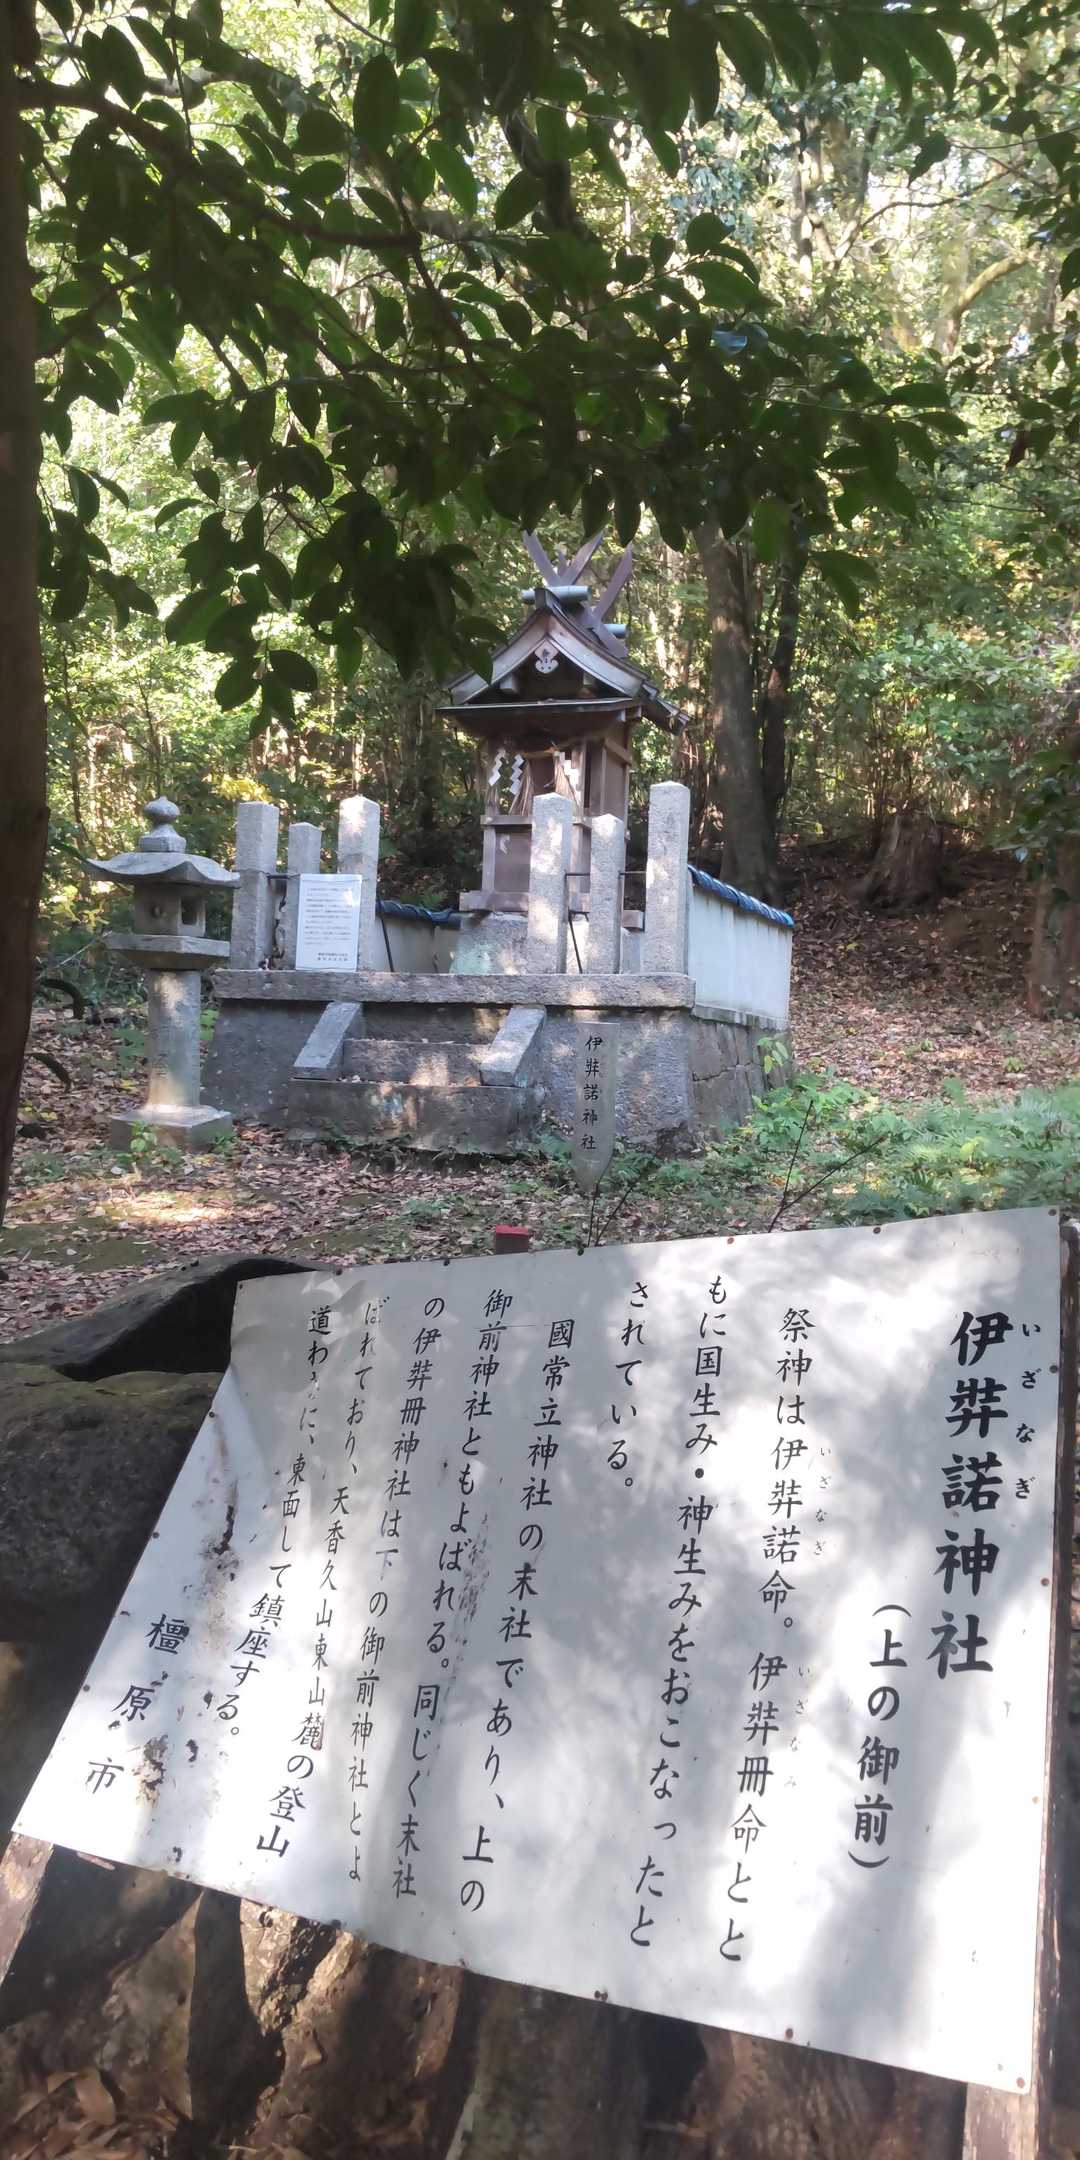 伊弉諾神社
いざなぎ
（上の御前）
祭神は伊弉諾命。伊弉冊命とと
いざなぎ
いざなみ
もに国生み・神生みをおこなったと
されている。
國常立神社の末社であり、上の
御前神社ともよばれる。同じく末社
の伊弉冊神社は下の御前神社とよ
ばれており、天香久山東山麓の登山
道わきに、東面して鎮座する。
橿原市
伊弉諾神社